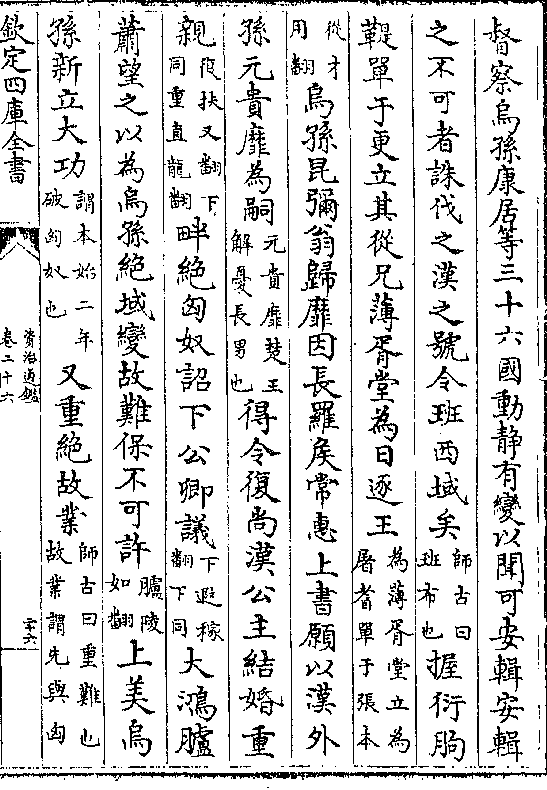 督察烏孫康居等三十六國動静有變以聞可安輯安輯
之不可者誅伐之漢之號令班西域矣師古曰班布也握衍朐
鞮單于更立其從兄薄胥堂為日逐王為薄胥堂立為屠耆單于張本
從才用翻烏孫昆彌翁歸靡因長羅侯常惠上書願以漢外
孫元貴靡為嗣元貴靡楚王解憂長男也得令復尚漢公主結婚重
親復扶又翻下同重直龍翻畔絶匈奴詔下公卿議下遐稼翻下同大鴻臚
蕭望之以為烏孫絶域變故難保不可許臚陵如翻上美烏
孫新立大功謂本始二年破匈奴也又重絶故業師古曰重難也故業謂先與匈
欽定四庫全書
資治通鑑
卷二十六